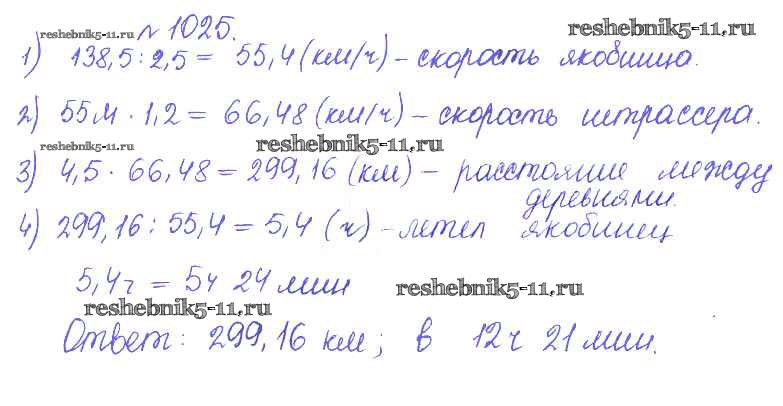 reshebnik5-11.ru № 1025. reshebnik5-11.ru
1) 138,5 : 2,5 = 55,4 (км/ч) – скорость якобинца.
2) 55,4 · 1,2 = 66,48 (км/ч) – скорость штрассера.
reshebnik5-11.ru reshebnik5-11.ru
3) 4,5 · 66,48 = 299,16 (км) – расстояние между
деревнями.
4) 299,16 : 55,4 = 5,4 (ч) – летел якобинец
5,4ч = 5ч 24 мин reshebnik5-11.ru
reshebnik5-11.ru
Ответ: 299,16 км; в 12ч 21 мин.